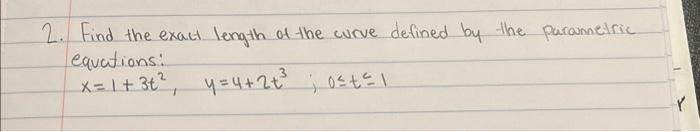 2. Find the exact length of the curve defined by the parametric
equations:
x = 1 + 3t², y = 4 + 2t³ ; 0 ≤ t ≤ 1